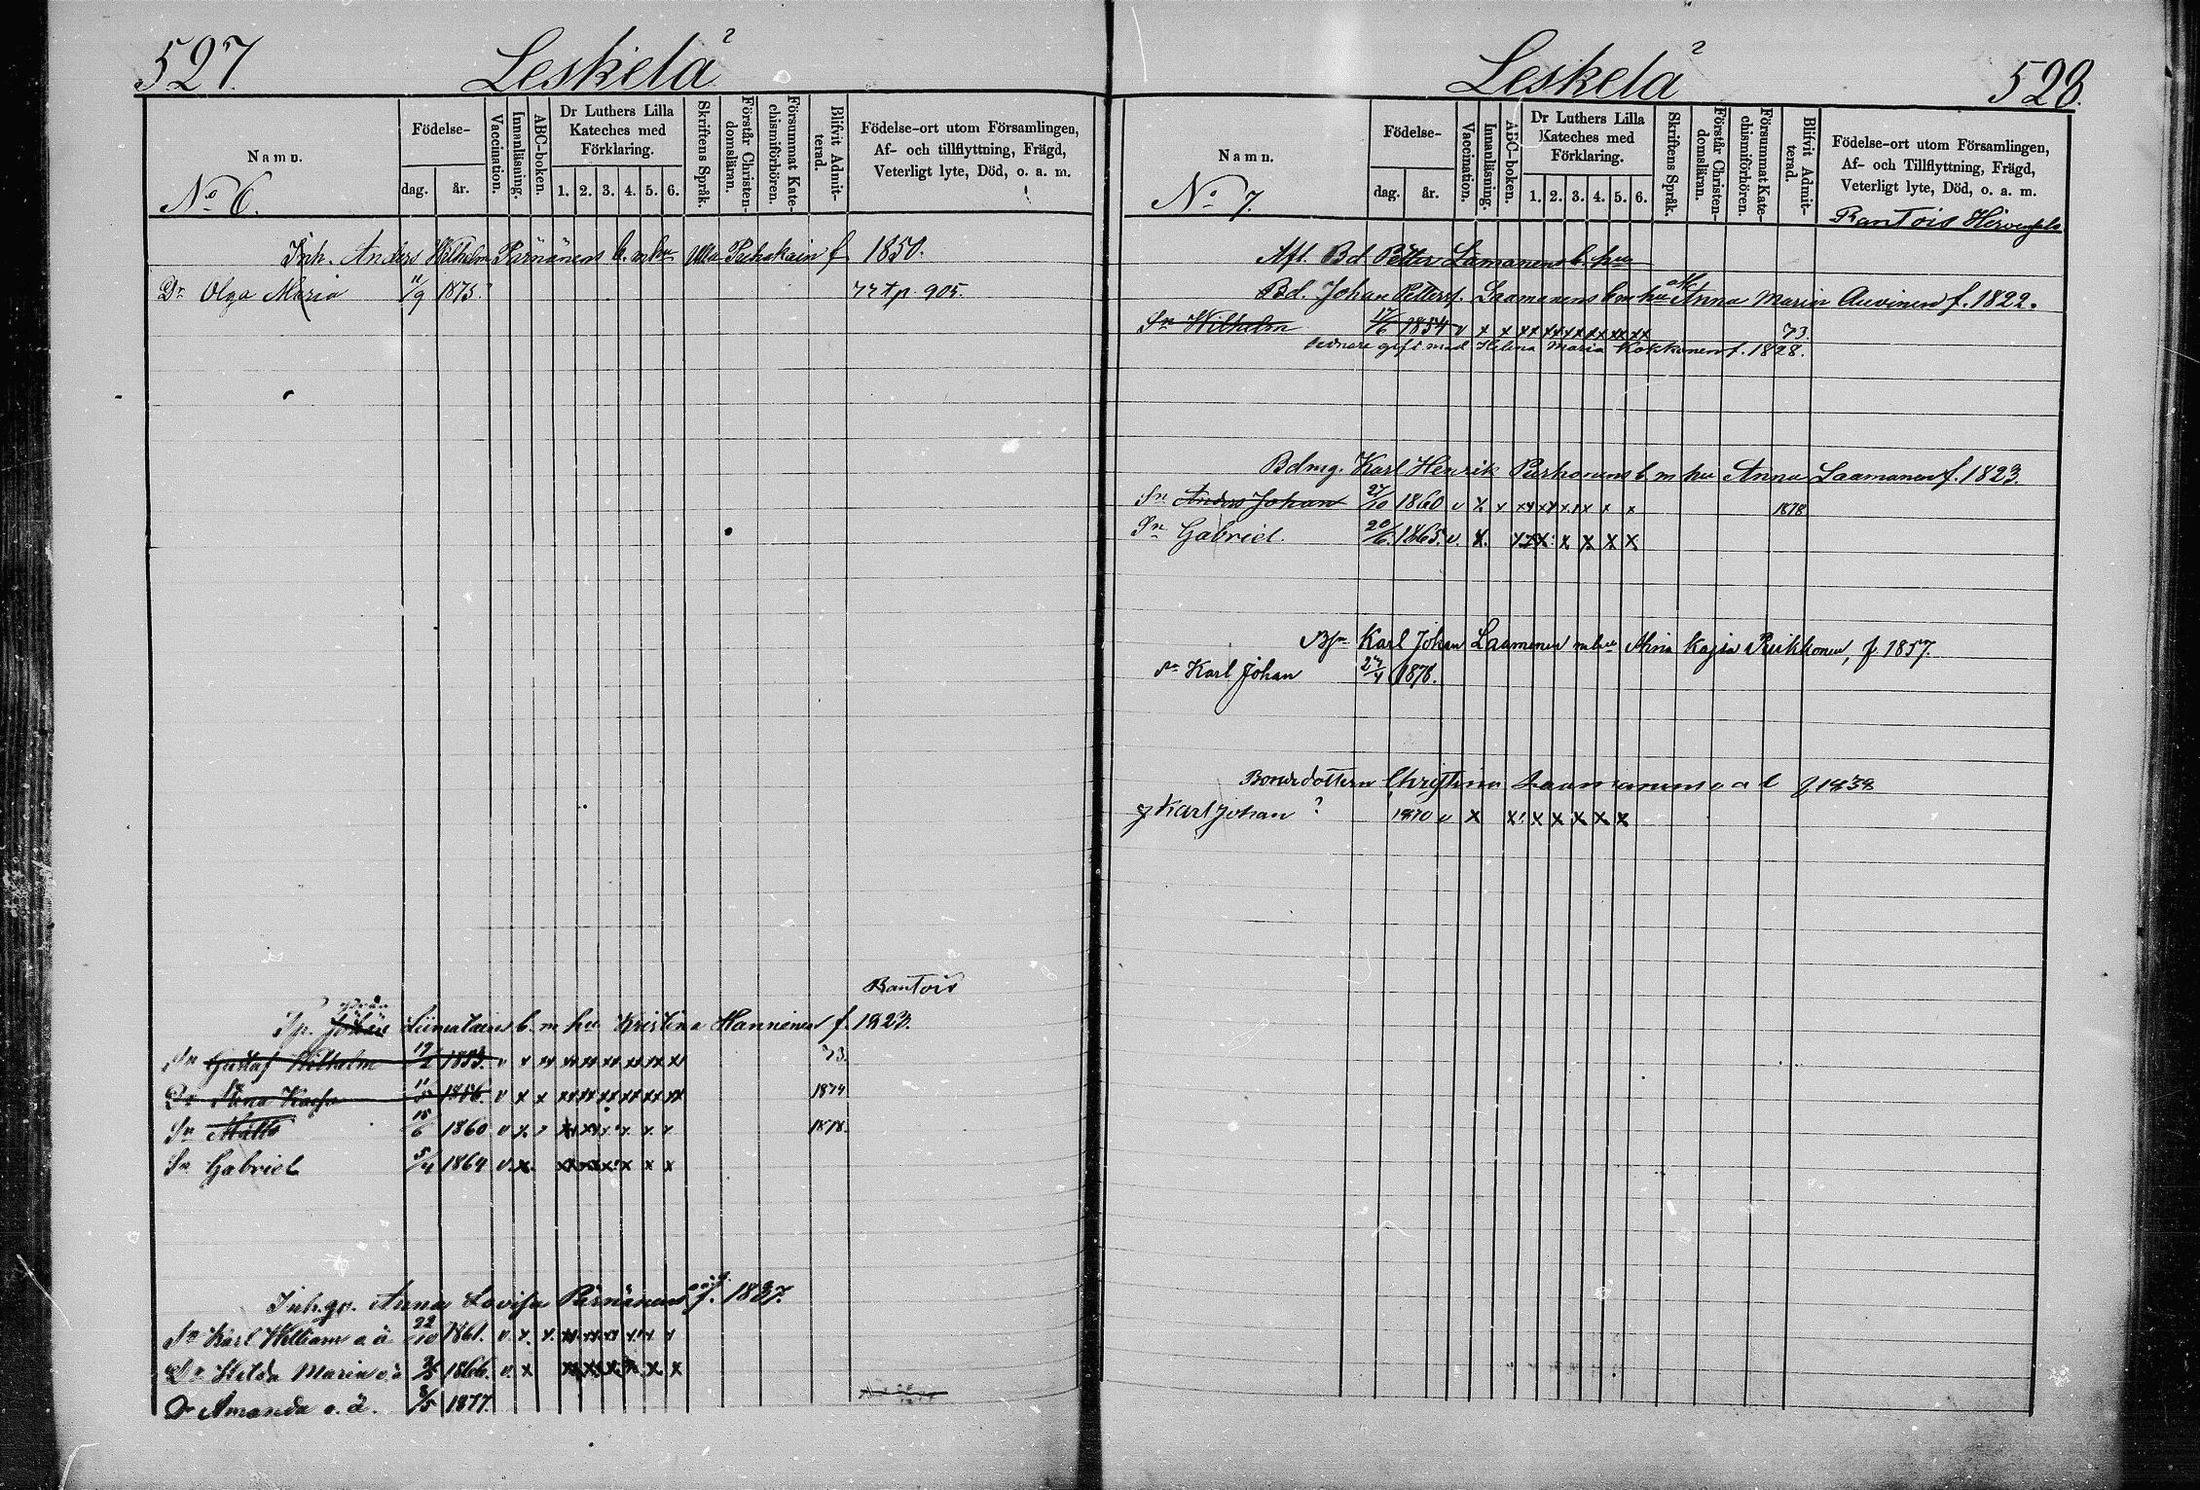 527.
Leskelä
Namn.
Födelse-
dag.
år.
Vaccination.
Innanläsning.
ABC-boken.
Dr Luthers Lilla
Kateches med
Förklaring.
1. 2. 3. 4. 5. 6.
Skriftens Språk.
Förstår Christen-
domsläran.
Försummat Kate-
chismiförhören.
Blifvit Admit-
terad.
Födelse-ort utom Församlingen,
Af- och tillflyttning, Frägd,
Veterligt lyte, Död, o. a. m.
No 6.
Inh. Anders Wilhelm Pärnänens b. m hu Ulla Puhakain f 1850.
Dr Olga Maria 11/9 1875. 77 tp. 905.
Rantois
Sp. Johan Liimatains b. m hu Kristina Hanninen f. 1823.
Sn Gustaf Wilhelm 1853. v x xx xx xx xx xx xx xx 73.
Dr Anna Kajsa 11/5 1856. v x x xx xx xx xx xx xx 1874
Sn Matts 15/6 1860 v x 1878.
Sn Gabriel 5/4 1864 v x.
Inh.  Anna Lovisa Pärnänens f. 1837.
Sn Karl William o. ä 22/10 1861. v. x. x.
Dr Hilda Maria o. ä 1866. v. x
Dr Amanda o. ä. 8/5 1877.
Leskelä
528.
Namn.
Födelse-
dag.
år.
Vaccination.
Innanläsning.
ABC-boken.
Dr Luthers Lilla
Kateches med
Förklaring.
1. 2. 3. 4. 5. 6.
Skriftens Språk.
Förstår Christen-
domsläran.
Försummat Kate-
chismiförhören.
Blifvit Admit-
terad.
Födelse-ort utom Församlingen,
Af- och Tillflyttning, Frägd,
Veterligt lyte, Död, o. a. m.
No 7.
Rantois
Afl. Bd Petter Lamanens b. hu
Bd. Johan Petterss. Laamanens b m hu Anna Maria Auvinen f. 1822.
Sn Wilhelm 17/6 1854 v x x xx xx xx xx xx xx 73.
sednare gift med Helena Maria Kokkonen f. 1828.
Bdmg. Karl Henrik Purhonens b m hu Anna Laamanen f. 1823.
Sn Anders Johan 27/10 1860 v x x 1878
Sn Gabriel 20/6. 1865. v. x.
Karl Johan Laamanen m hu Mina Kajsa Pirkkonen, f. 1857.
Sn Karl Johan 27/4 1878.
Bondedottern Christina Laamanens o ä f 1838
g Karl Johan ? 1870 v x x! x x x x x